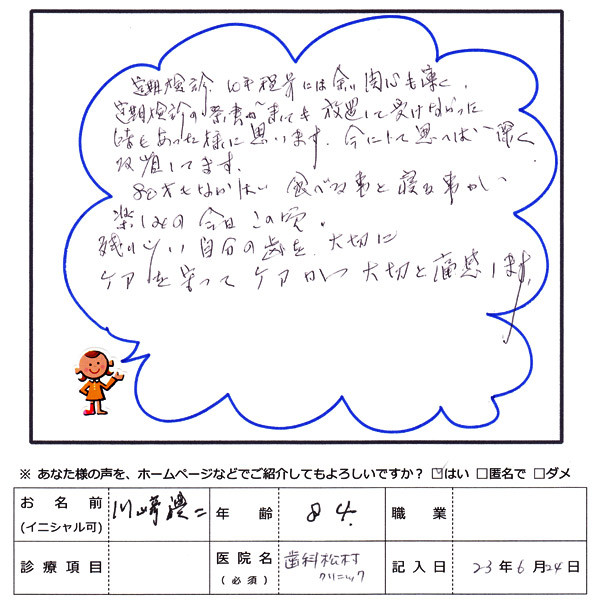 定期検診、以前には余り関心も薄く、
定期検診の葉書が来ても放置して受けなかった
時もあった様に思います。今にして思へば深く
反省してます。
80才もなかば、食べる事と寝る事が
楽しみの今日この頃。
残り少い自分の歯を、大切に
ケアを守ってケアが大切と痛感します。
※ あなた様の声を、ホームページなどでご紹介してもよろしいですか? ☑はい □匿名で □ダメ
お名前 (イニシャル可) 川崎 二 年齢 84才 職業
診療項目 医院名 (必須) 歯科松村クリニック 記入日 23年6月24日